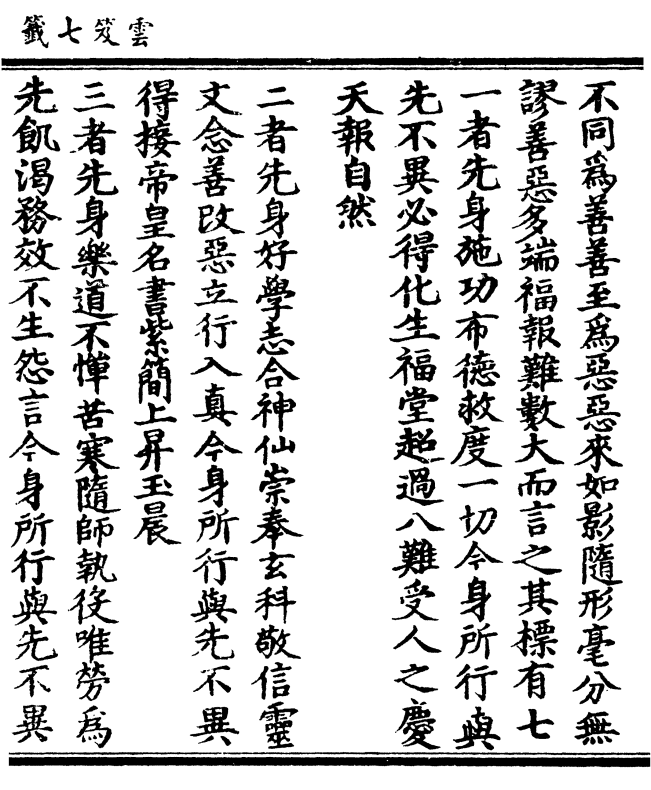 雲笈七籤
不同爲善善至爲惡惡來如影隨形毫分無
謬善惡多端福報難數大而言之其標有七
一者先身施功布德救度一切今身所行與
先不異必得化生福堂超過八難受人之慶
天報自然
二者先身好學志合神仙崇奉玄科敬信靈
文念善改惡立行入真今身所行與先不異
得接帝皇名書紫簡上昇玉晨
三者先身樂道不憚苦寒隨師執役唯勞爲
先飢渴務效不生怨言今身所行與先不異